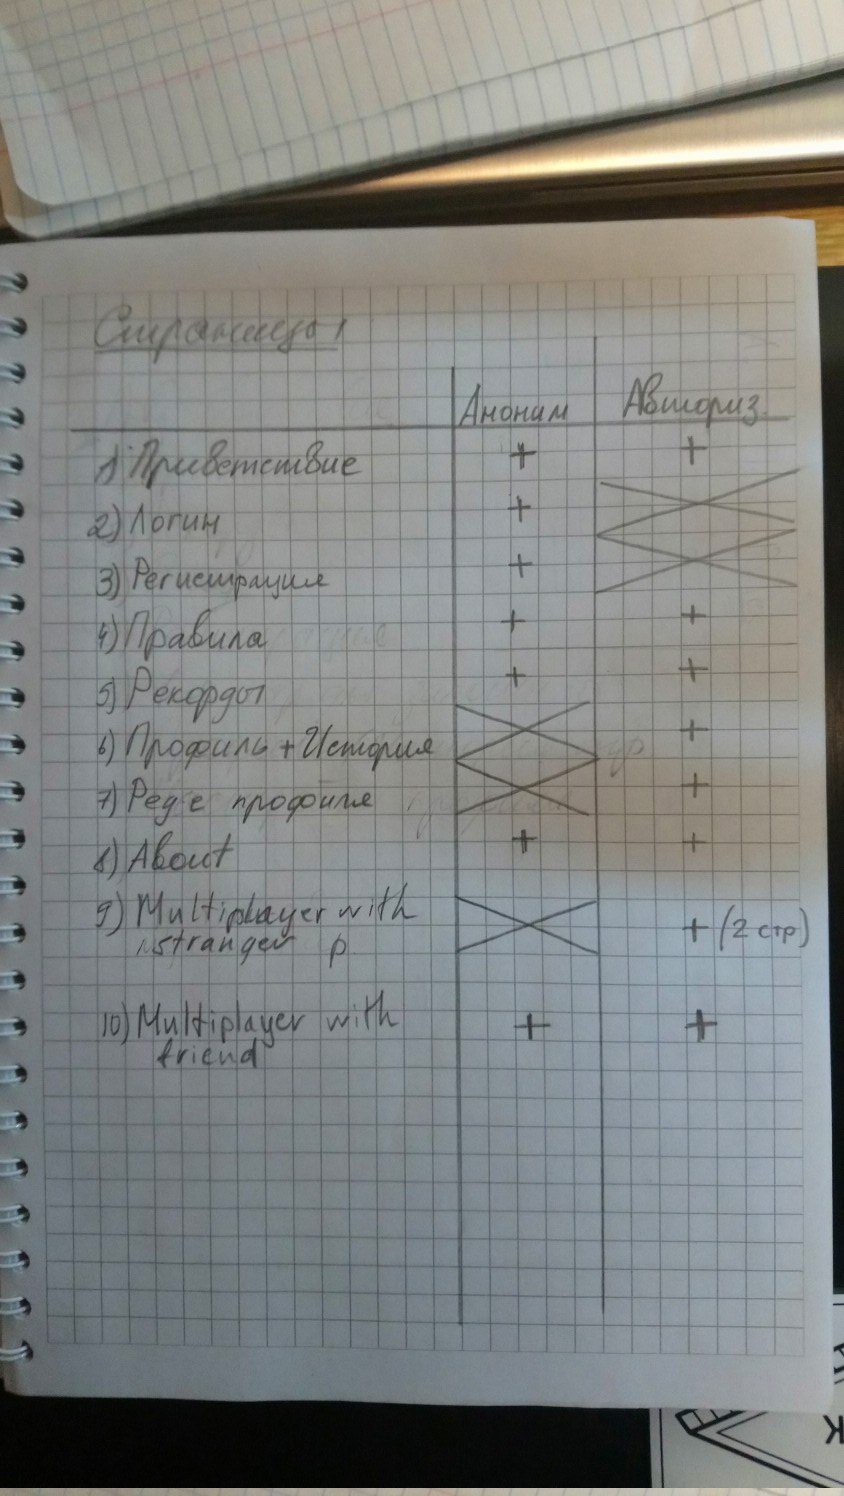 Страницы
Аноним Авториз.
1) Приветствие + +
2) Логин +
3) Регистрация +
4) Правила + +
5) Рекорды + +
6) Профиль + История +
7) Ред-е профиля +
8) About + +
9) Multiplayer with + (2 стр)
stranger p
10) Multiplayer with + +
friend
K